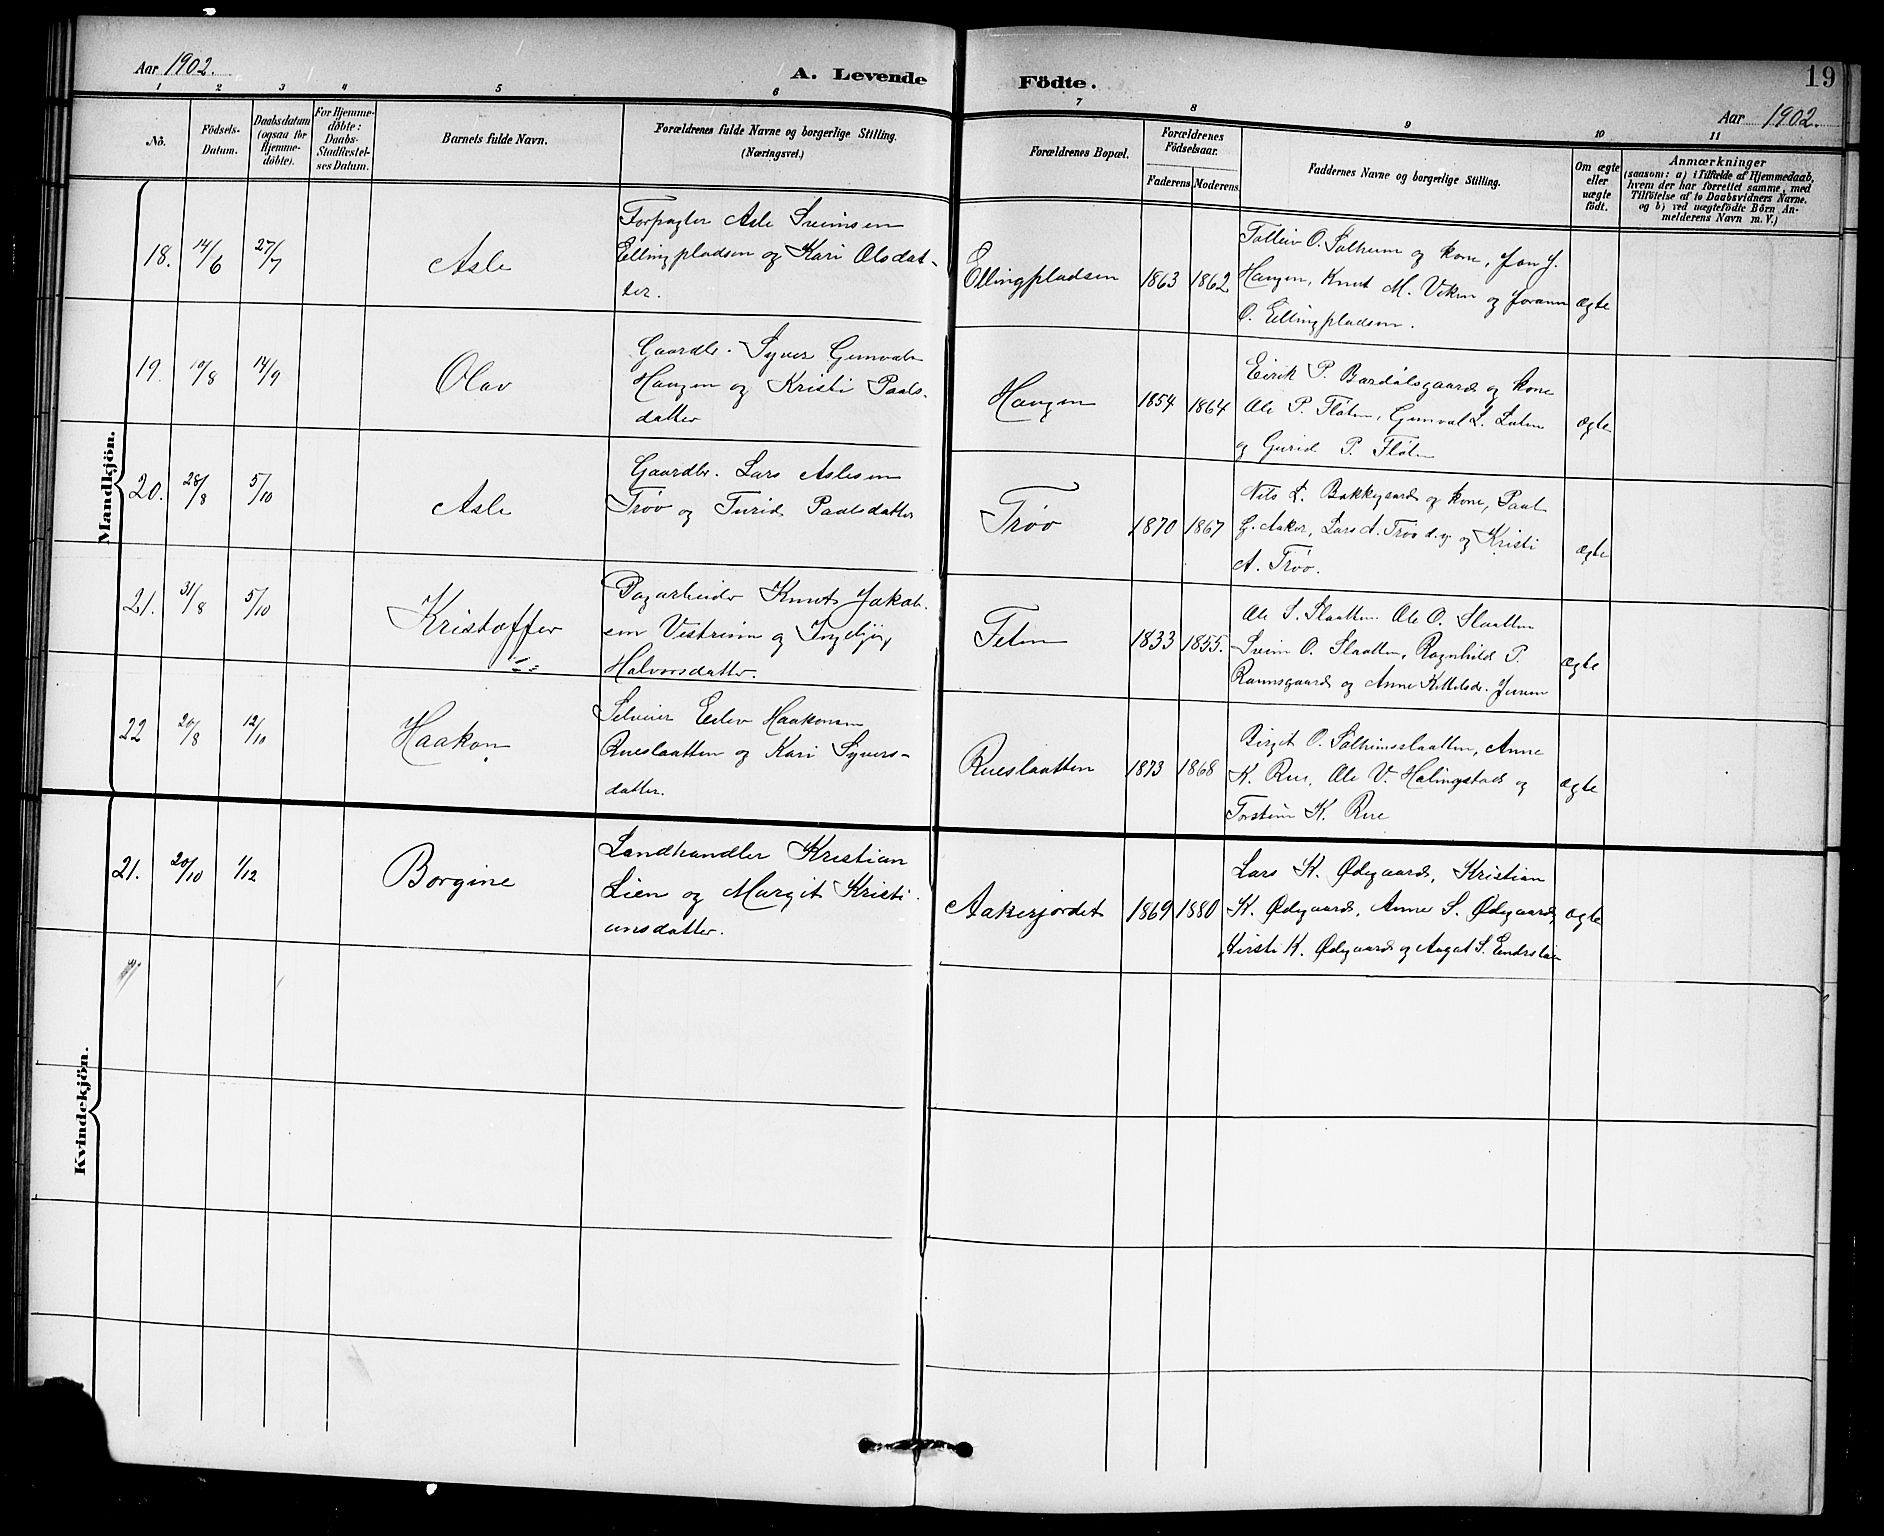 Aar 1902.
A. Levende Födte.
19
Aar 1902.
1 2 3 4 5 6 7 8 9 10 11
No.
Födsels-
Datum.
Daabsdatum
(ogsaa for
Hjemme-
döbte).
For Hjemme-
döbte:
Daabs-
Stadfæstel-
ses Datum.
Barnets fulde Navn.
Forældrenes fulde Navne og borgerlige Stilling.
(Næringsvei.)
Forældrenes Bopæl.
Forældrenes
Födselsaar.
Faderens Moderens.
Faddernes Navne og borgerlige Stilling.
Om ægte
eller
uægte
födt.
Anmærkninger
(saasom: a) i Tilfælde af Hjemmedaab,
hvem der har forrettet samme, med
Tilföielse af to Daabsvidners Navne,
og b) ved uægtefödte Börn An-
melderens Navn m. V.)
Mandkjön.
18. 14/6 27/7
Asle
Forpagter Asle Sveinsen
Ellingpladsen og Kari Olsdat-
ter.
Ellingpladsen 1863 1862
Tolleiv O. Solheim og kone, Jon J.
Haugen, Knut M. Viken og Joran
O. Ellingpladsen.
ægte
19. 19/8 14/9
Olav
Gaardbr. Syver Gunvals
Haugen og Kristi Paals-
datter
Haugen 1854 1864
Eirik P. Bardalsgaard og kone
Ole P. Fløten, Gunval L.
og Gurid P. Fløten
ægte
20. 28/8 5/10
Asle
Gaardbr. Lars Aslesen
Trøo og Turid Paalsdatter
Trøo 1870 1867
Nils L. Bakkegaard og kone, Paal
G. Aaker, Lars A. Trøo d.y. og Kristi
A. Trøo.
ægte
21. 31/8 5/10
Kristoffer
Dagarbeider Knut Jakob-
sen Vestreim og Ingebjør
Halvorsdatter.
1833 1855.
Ole S. Slaatten. Ole O. Slaatten
Svein O. Slaatten, Ragnhild P.
Ramsgaard og Anne Kittilsdr.
ægte
22 20/8 12/10
Haakon
Selveier Eslev Haakonsen
Rueslaatten og Kari Syvers-
datter.
Rueslaatten 1873 1868
Birgit O. Solheimsslaatten, Anne
K. Rue, Ole V. Halingstad og
Torstein K. Rue
ægte
Kvindekjön.
21. 20/10 1/12
Borgine
Landhandler Kristian
Lien og Margit Kristi-
ansdatter.
Aakerjordet 1869 1880
Lars K. Ødegaard, Kristian
K. Ødegaard, Anne S. Ødegaard,
Kirsti K. Ødegaard og Aagot S.
ægte